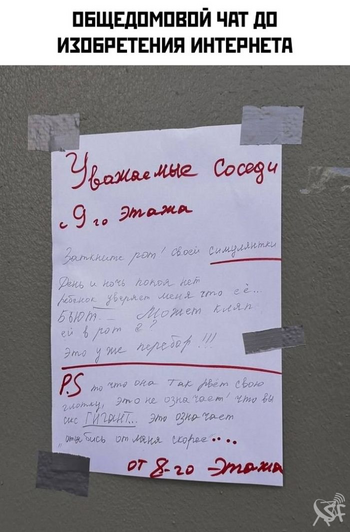 ОБЩЕДОМОВОЙ ЧАТ ДО
ИЗОБРЕТЕНИЯ ИНТЕРНЕТА
Уважаемые соседи
с 9го этажа
Заткните рот! своей симулянтки
День и ночь покоя нет
Ребенок уверяет меня что её...
БЬЮТ... Может кляп
ей в рот а?
Это уже перебор!!!
P.S то что она так рвёт свою
глотку, это не означает что вы
ГИГАНТ... это означает
от меня скорее....
от 8-го Этажа